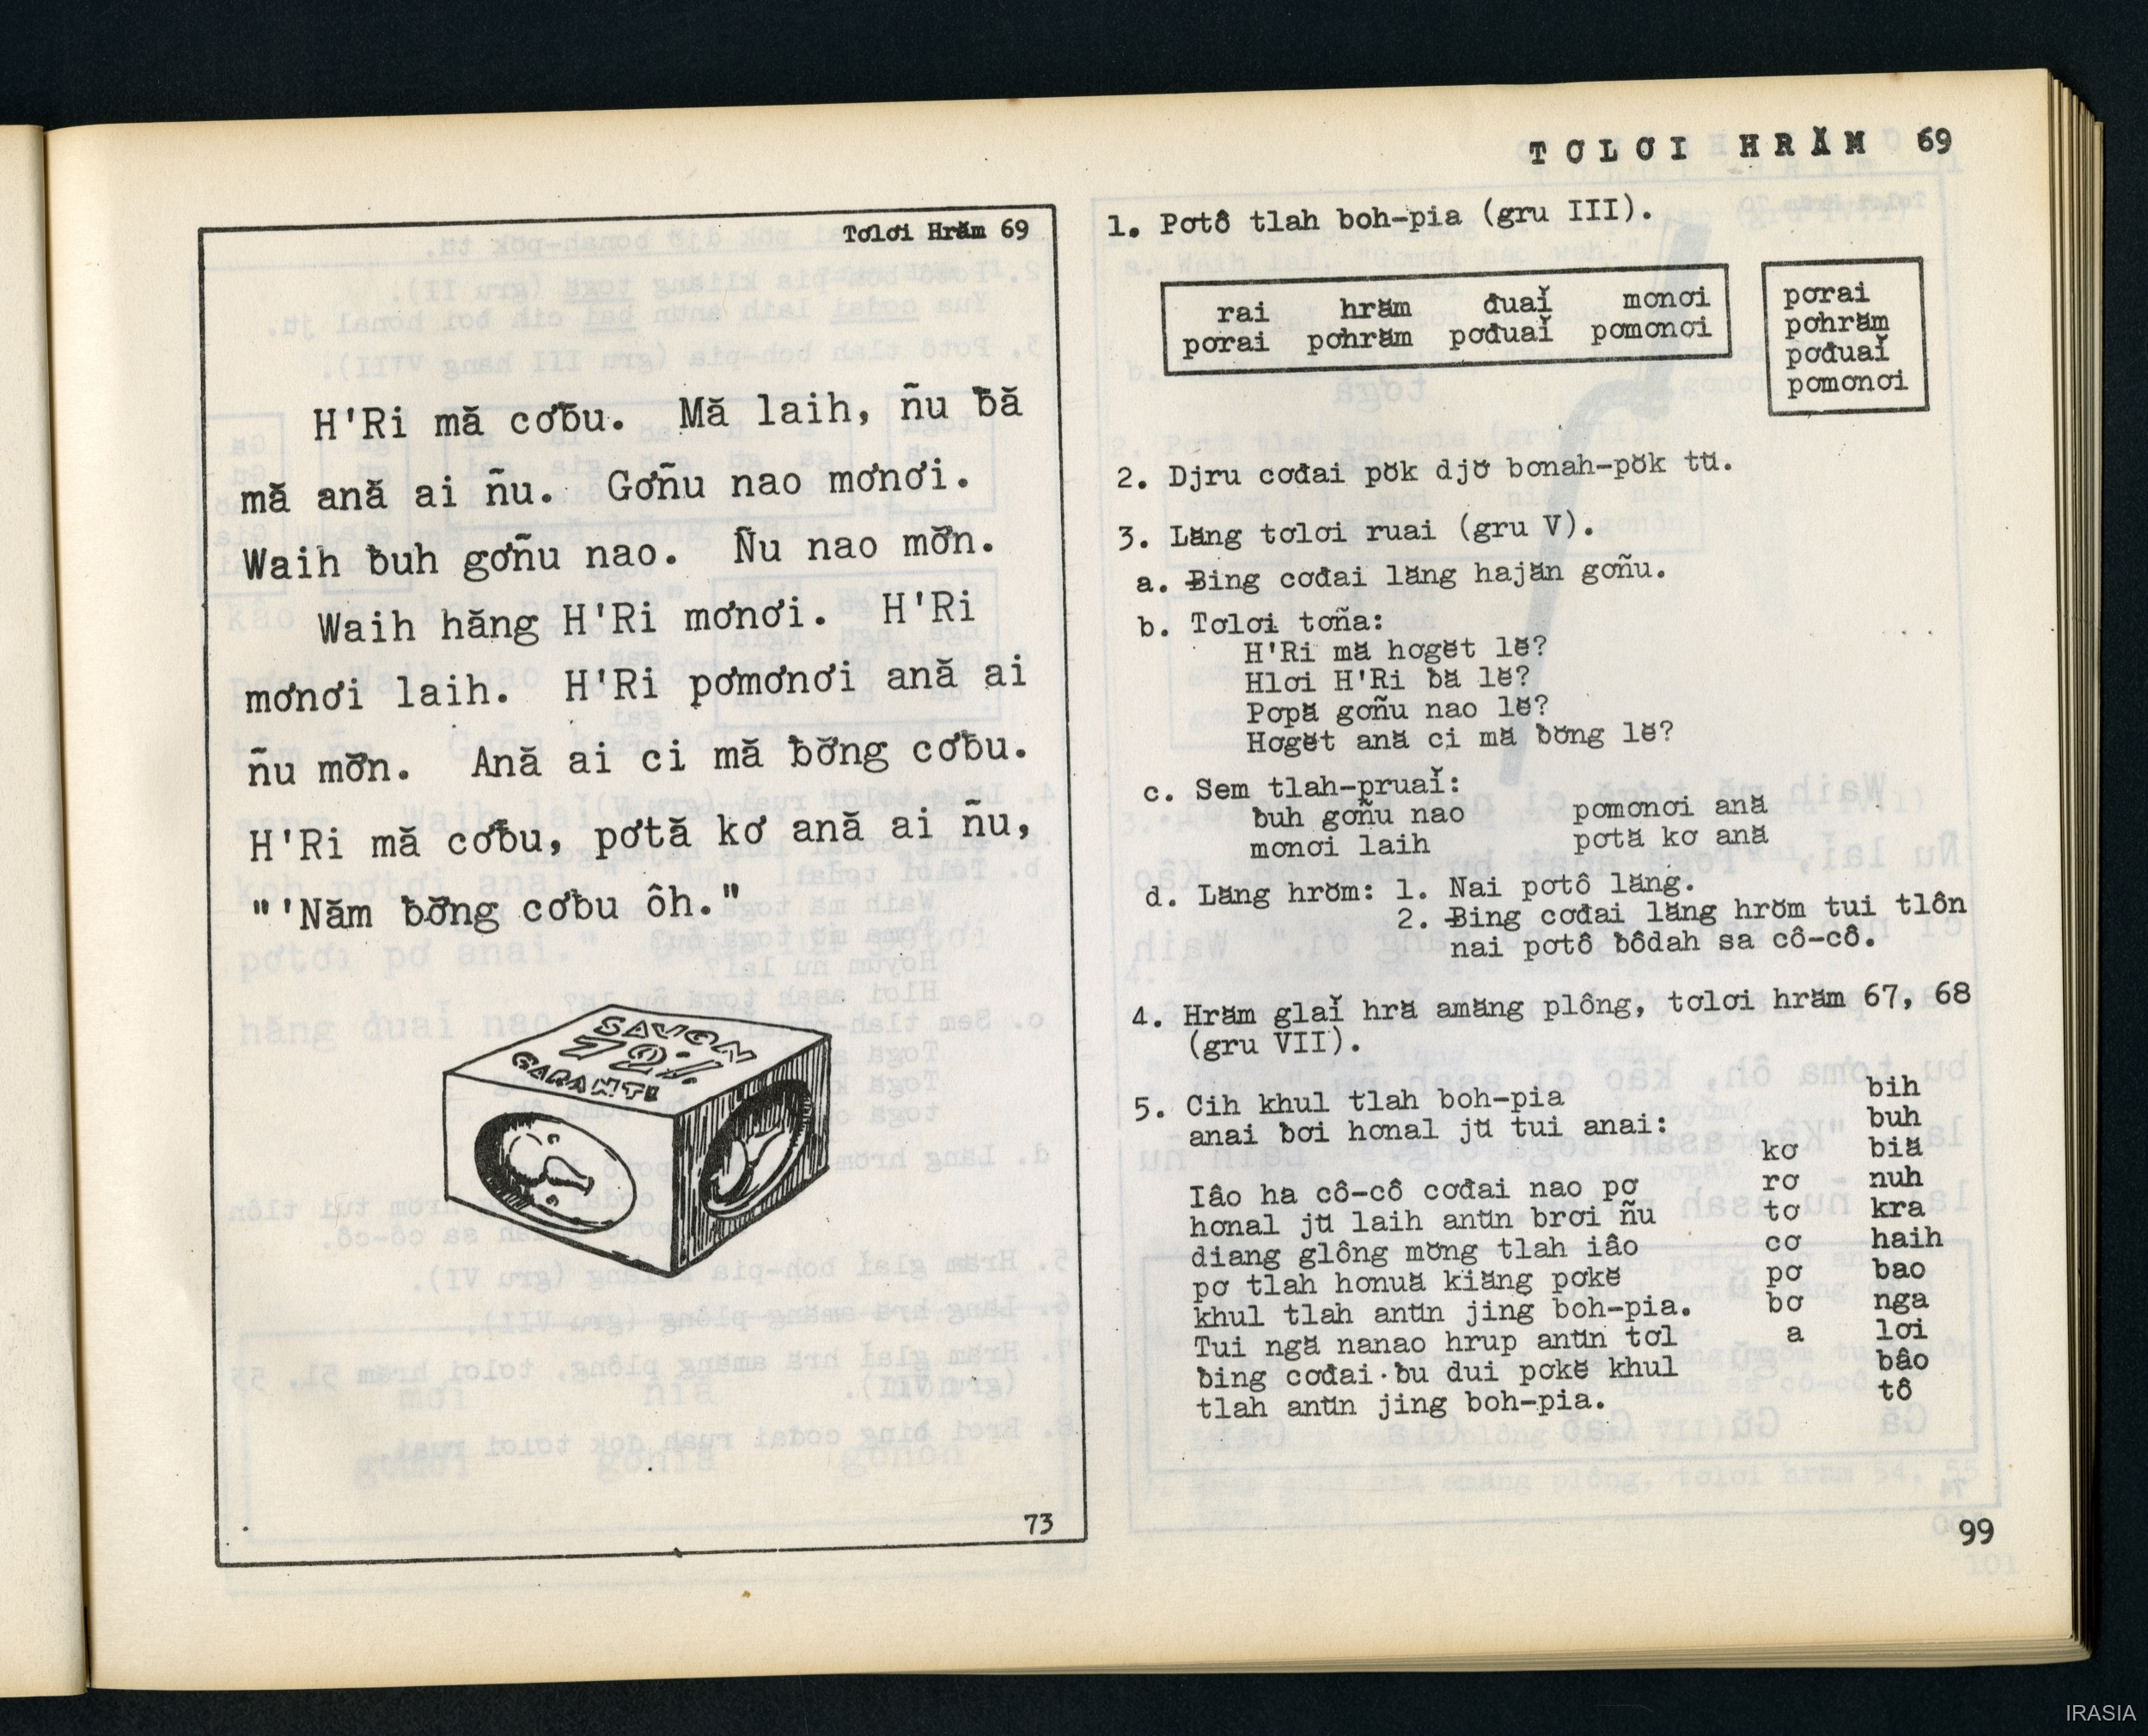 Tơlơi Hrăm 69
H'Ri mă cơƀu. Mă laih, ñu ƀă
mă ană ai ñu. Gơñu nao mơnơi.
Waih ƀuh gơñu nao. Ñu nao mơ̆n.
Waih hăng H'Ri mơnơi. H'Ri
mơnơi laih. H'Ri pơmơnơi ană ai
ñu mơ̆n. Ană ai ci mă ƀơ̆ng cơƀu.
H'Ri mă cơƀu, pơtă kơ ană ai ñu,
"'Năm ƀơ̆ng cơƀu ôh."
SAVON
72%
GARANTI
73
TƠLƠI HRĂM 69
1. Pơtô tlah boh-pia (gru III).
rai hrăm đuaĭ mơnơi
pơrai pơhrăm pơđuaĭ pơmơnơi
pơrai
pơhrăm
pơđuaĭ
pơmơnơi
2. Djru cơđai pŏk djơ̆ bơnah-pŏk tŭ.
3. Lăng tơlơi ruai (gru V).
a. Ƀing cơđai lăng hajăn gơñu.
b. Tơlơi tơña:
H'Ri mă hơgĕt lĕ?
Hlơi H'Ri ƀă lĕ?
Pơpă gơñu nao lĕ?
Hơgĕt ană ci mă ƀơ̆ng lĕ?
c. Sem tlah-pruaĭ:
ƀuh gơñu nao pơmơnơi ană
mơnơi laih pơtă kơ ană
d. Lăng hrŏm: 1. Nai pơtô lăng.
2. Ƀing cơđai lăng hrŏm tui tlôn
nai pơtô ƀôdah sa cô-cô.
4. Hrăm glaĭ hră amăng plông, tơlơi hrăm 67, 68
(gru VII).
5. Cih khul tlah boh-pia
anai ƀơi hơnal jŭ tui anai:
Iâo ha cô-cô cơđai nao pơ
hơnal jŭ laih anŭn brơi ñu
diang glông mơ̆ng tlah iâo
pơ tlah hơnuă kiăng pơkĕ
khul tlah anŭn jing boh-pia.
Tui ngă nanao hrup anŭn tơl
ƀing cơđai ƀu dui pơkĕ khul
tlah anŭn jing boh-pia.
kơ
rơ
tơ
cơ
pơ
bơ
a
bih
buh
biă
nuh
kra
haih
bao
nga
lơi
bâo
tô
99
IRASIA